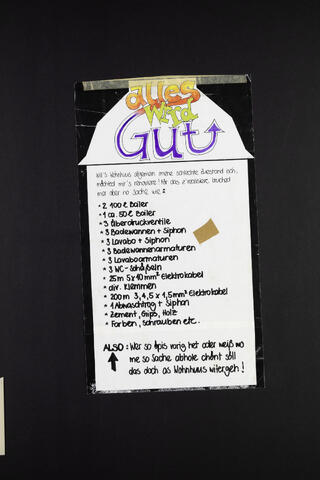 alles
wird
Gut
Will's Wohnhuus allgemein imene schlechte Zuestand isch,
möchted mir's renoviere! Für das z'realisiere, bruched
mir aber no Sache wie:
* 2 100 l Boiler
* 1 ca. 50 l Boiler
* 3 Überdruckventile
* 3 Badewannen + Siphon
* 3 Lavabo + Siphon
* 3 Badewannenarmaturen
* 3 Lavaboarmaturen
* 3 WC-Schüßeln
* 25m 5x10mm² Elektrokabel
* div. Klemmen
* 200m 3,4,5 x 1,5mm² Elektrokabel
* 1 Abwaschtrog + Siphon
* Zement, Gips, Holz
* Farben, Schrauben etc.
ALSO: Wer so öpis vorig het oder weiß wo
me so Sache abhole chönt söll
das doch as Wohnhuus witergeh!